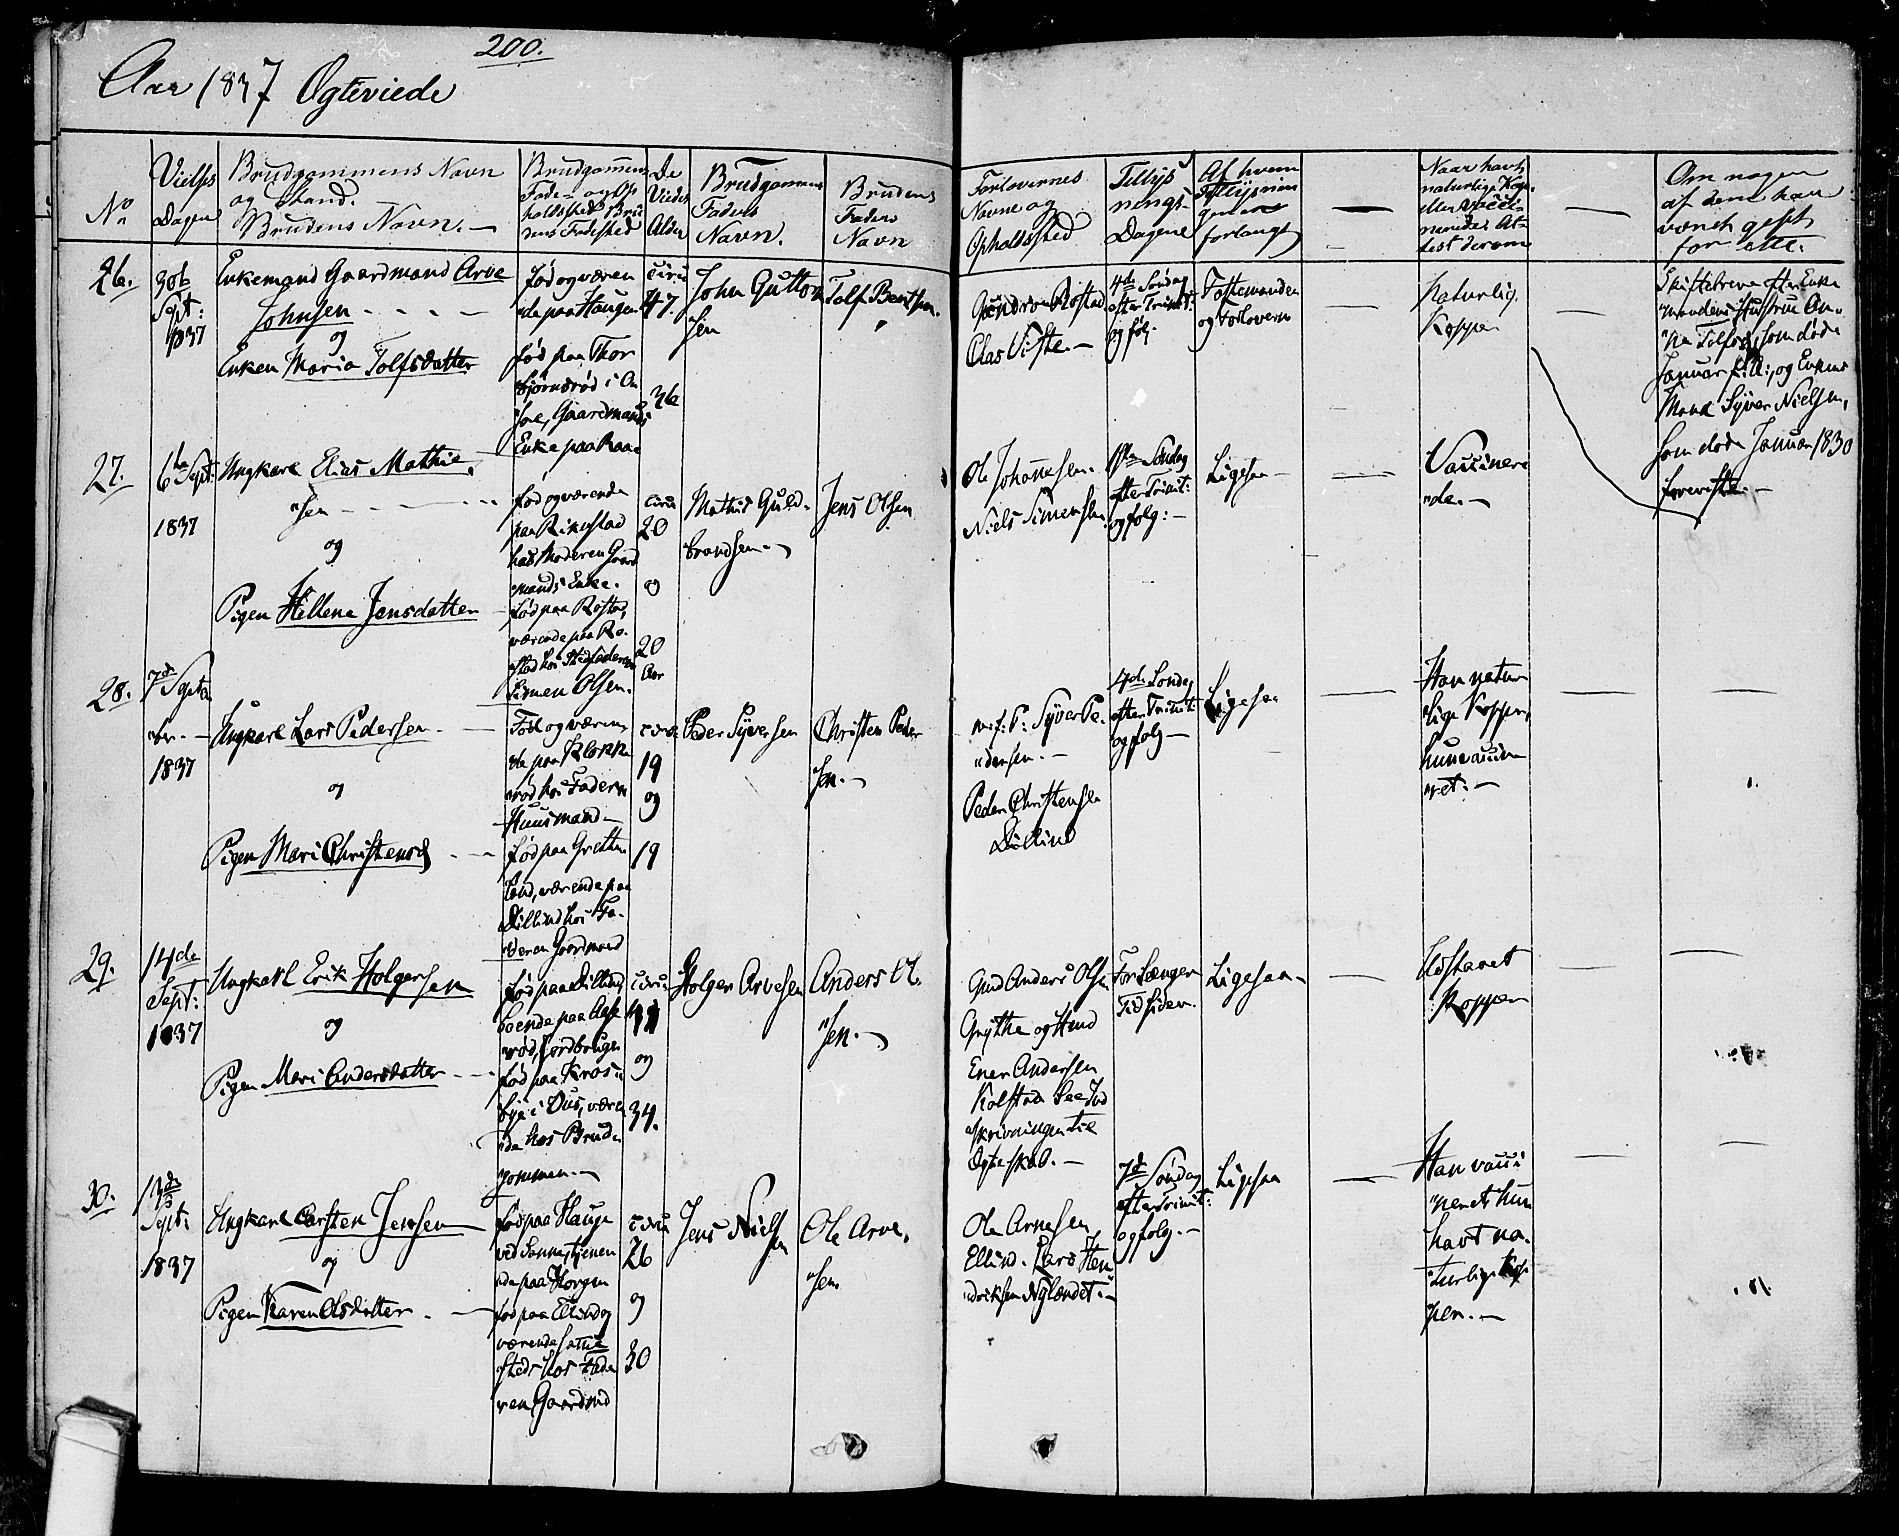 200.
Aar 1837 Ægteviede
No
Vielses
Dagen
Brudgommens Navn
og Stand.
Brudens Navn. —
Brudgommens
Føde- og Op
holdssted Bru
dens Fødested
De
Viedes
Alder
Brudgommens
Faders
Navn.
Brudens
Faders
Navn
Forlovernes
Navne og
Opholdssted
Tillys
nings-
Dagene
Af hvem
forlangt
Naar havt
naturlige Kop.
eller vacci-
neredes At-
test derom
Om nogen
af dem har
været gift
før etc.
26.
Sept:
1837
Enkemand Gaardmand Arve
Johnsen - - - -
og
Enken Maria Tolfsdatter
fød og væren
de paa Haugen
fød paa Thor
bjørnsrød i On
søe, Gaardmands
Enke paa Raae
circa
47.
36
John Gutton
sen
Tolf Berthsen.
Røstad
Claus Viste. —
4de Søndag
efter Trinit:
og følg.
Festemanden
og Forloverne
Naturlig.
Kopper
Skiftebreve efter Enke
mandens Hustrue An-
na Tolfsd, som døde
Januar f: A:, og Enkens
Mand Syver Nielsen,
som døde Januar 1830
foreviste. —
27.
6te Sept:
1837
Ungkarl Elias Mathie-
"sen - - -
og
Pigen Hellene Jensdatter
fød og værende
paa Rikestad
hos Moderen Gaard
mands Enke.
fød paa Røstad,
værende paa Rø-
stad hos Stedfaderen
Simen Olsen.
circa
20
og
20
Aar
Mathis Guld-
brandsen. —
Jens Olsen
Ole Johannesen.
Niels Simensen
Søndag
efter Trinit:
og følg: —
Ligesaa —
Vaccinere
"de. —
28.
7de Septe
"br. —
1837
Ungkarl Lars Pedersen. —
og
Pigen Mari Christensd
Fød og væren
de paa Klopp
rød hos Faderen
Huusmand —
fød paa Gretten
lund, værende paa
Dillind hos Fa-
deren Gaardmand
circa
19
og
19
Peder Syversen
Christen Peder
"sen. —
Syver Pe.
"dersen. —
Peder Christensen
Dillind
4de Søndag
efter Trinit:
og følg —
Ligesaa
Han natur
"lige Kopper,
hun vaccine
"ret: —
29.
14de
Sept:
1837
Ungkarl Erik Holgersen
og
Pigen Mari Andersdatter - - -
fød paa Dilling
boende paa Aase
"rød, Jordbruger
fød paa Kros
bye i Vus, væren
"de hos Brud-
gommen. —
circa
og
34.
Holger Arvesen
Anders Ol.
"sen. —
Anders Olsen
Grythe og
Ener Andersen
Kolstad See Ind
"skrivningen til
Ægteskab. —
For længere
Tid siden.
Ligesaa —
Kopper
30.
13de
Sept:
1837
Ungkarl Carsten Jensen
og
Pigen Karen Olsdatter. —
fød paa Hauge
ved Sonne, tjenen
de paa Horgen
fød paa Ellind og
værende samme
steds hos Fade
ren Gaardmd
circa
26
og
30
Jens Nielsen
Ole Arve.
"sen
Ole Arnesen
Ellind. Lars Hen
"driksen Nylændet. —
7de Søndag
efter Trinit:
og følg. —
Ligesaa
Han vacci
"neret hun
havt na-
"turlige Kop
"per. —